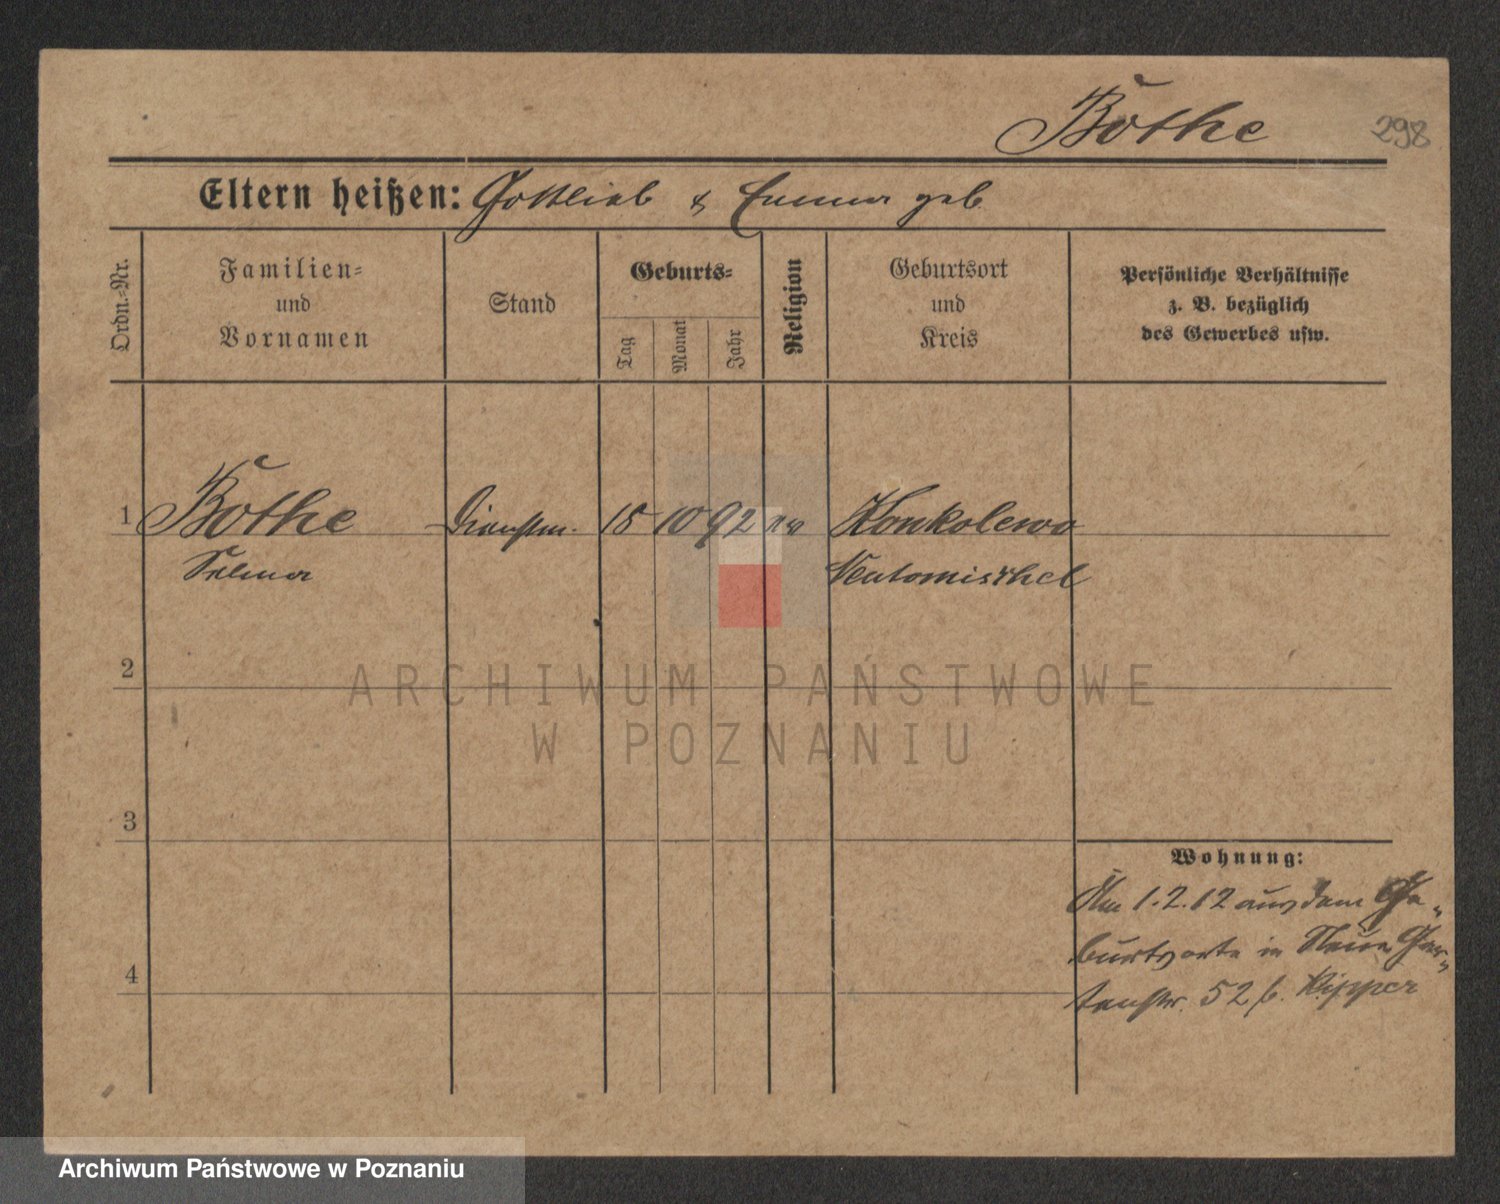 Böthe
298
Eltern heißen: Gottlieb & Emma geb
Ordn.=Nr.
Familien=
und
Vornamen
Stand
Geburts=
Tag
Monat
Jahr
Religion
Geburtsort
und
Kreis
Persönliche Verhältnisse
z. B. bezüglich
des Gewerbes usw.
1 Böthe Dienstm. 15 10 92 ev Konkolewo
Selma Neutomischel
2
ARCHIWUM PAŃSTWOWE
W POZNANIU
3
Wohnung:
Am 1.2.12 aus dem Ge-
burtsorte in Neue Gar-
tenstr. 52 b. Kipper
4
Archiwum Państwowe w Poznaniu